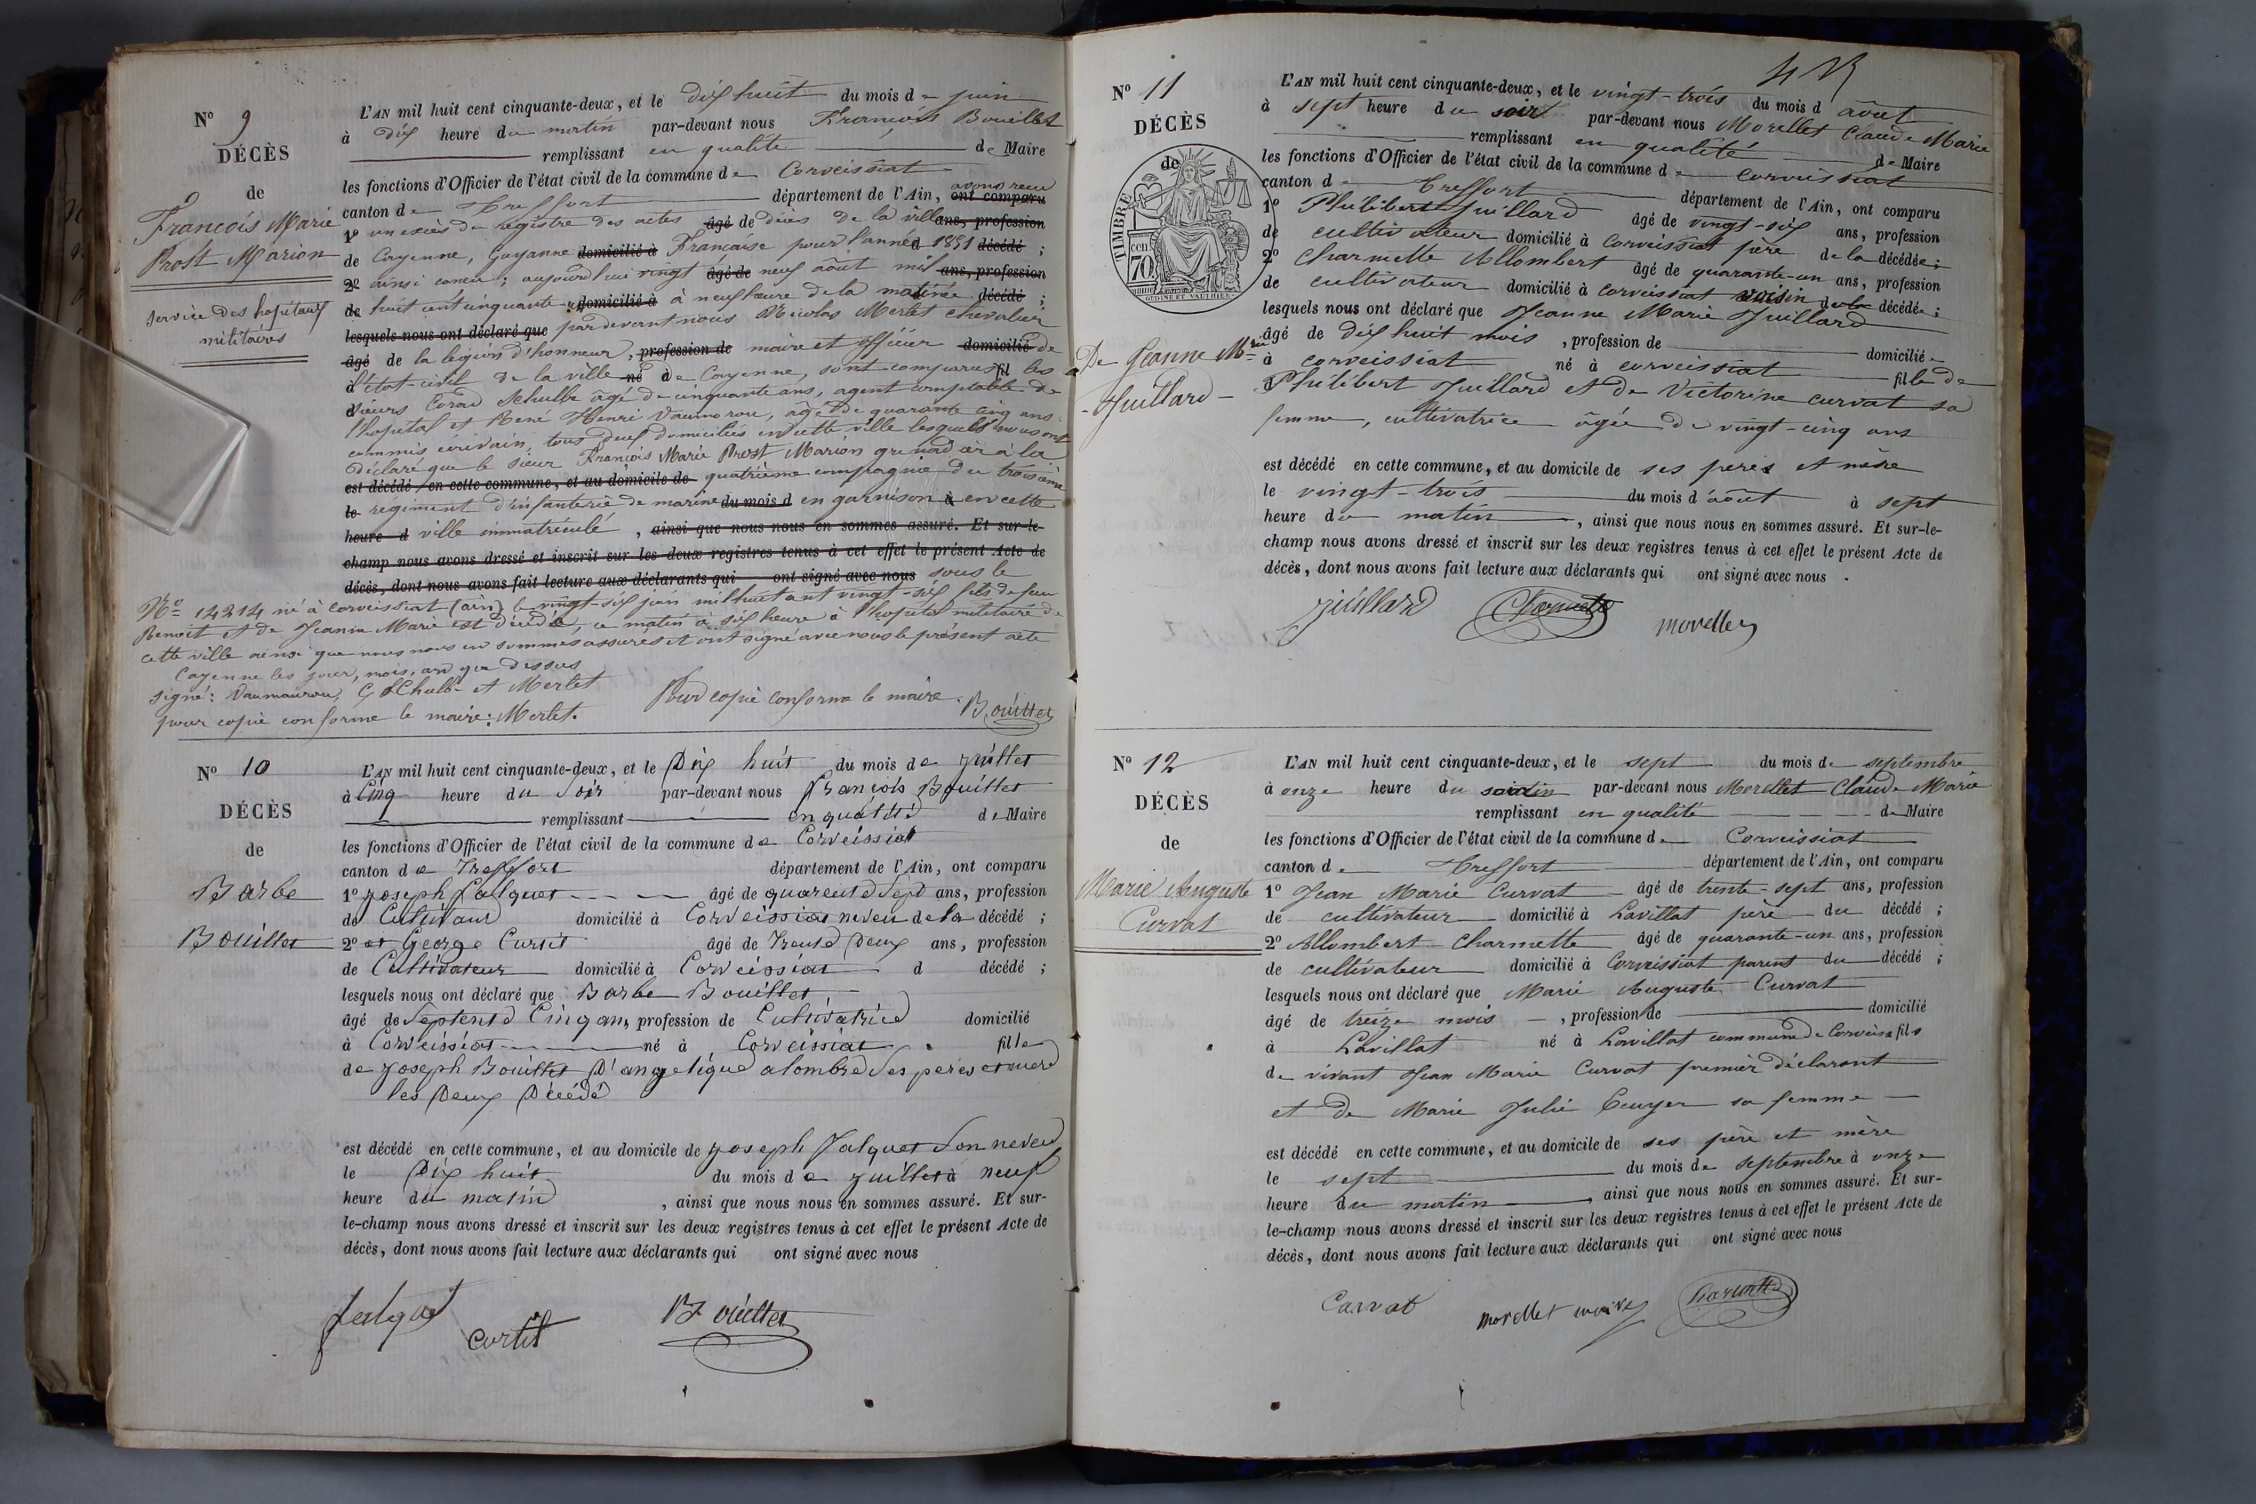 N° 9
DÉCÈS
de
François Marie
Prost Marion
service des hopitaux
militaires
L'AN mil huit cent cinquante-deux, et le dix huit du mois de juin
à dix heure du matin par-devant nous François Bouillet
remplissant en qualité de Maire
les fonctions d'Officier de l'état civil de la commune de Corveissiat
canton de Treffort département de l'Ain, ont comparu avons recu
1° un exès de registre des actes âgé de décès de la ville ans, profession
de Cayenne, Guyanne domicilié à Française pour l'année 1851 décédé ;
2° ainsi concu ; aujourd'hui vingt âgé de neuf août mil ans, profession
de huit cent cinquante domicilié à à neuf heure de la matinée décédé ;
lesquels nous ont déclaré que pardevant nous Nicolas Merlet chevalier
âgé de la legion d'honneur, profession de maire et officier domicilié de
à l'état-civil de la ville né de Cayenne, sont comparus fil les
d sieurs Schulbe âgé de cinquante ans, agent comptable de
l'hopital et René Henri Vaumorou, âgé de quarante cinq ans
commis écrivain, tous deux domiciliés en cette ville lesquels nous ont
déclaré que le sieur François Marie Prost Marion grenadier à la
est décédé en cette commune, et au domicile de quatrième compagnie du troisième
le régiment d'infanterie de marine du mois d en garnison à en cette
heure d ville immatriculé , ainsi que nous nous en sommes assuré. Et sur-le-
champ nous avons dressé et inscrit sur les deux registres tenus à cet effet le présent Acte de
décès, dont nous avons fait lecture aux déclarants qui ont signé avec nous sous le
N° 14214 né à Corveissiat (ain) le vingt-six juin mil huit cent vingt-six fils de feu
Benoit et de Jeanne Marie est décédé, ce matin à six heure à l'hopital militaire de
cette ville ainsi que nous nous en sommes assurés et ont signé avec nous le présent acte
Cayenne les jour, mois, an que dessus
signé : Vaumaurou, C, Schulb et Merlet
pour copie conforme le maire : Merlet. Pour copie conforme le maire. Bouillet
N° 10
DÉCÈS
de
Barbe
Bouillet
L'AN mil huit cent cinquante-deux, et le Dix huit du mois de juillet
à Cinq heure du Soir par-devant nous François Bouillet
remplissant en qualité de Maire
les fonctions d'Officier de l'état civil de la commune de Corveissiat
canton de Treffort département de l'Ain, ont comparu
1° joseph Jalquet âgé de quarente Sept ans, profession
de Cultivaur domicilié à Corveissiat neveu de la décédé ;
2° et George Curtit âgé de Trente Deux ans, profession
de Cultivateur domicilié à Corveissiat d décédé ;
lesquels nous ont déclaré que Barbe Bouillet
âgé de Septente Cinq ans, profession de Cultivatrice domicilié
à Corveissiat né à Corveissiat fille
de joseph Bouillet D'angelique alombre Ses peres et mere
les Deux Décédé
est décédé en cette commune, et au domicile de joseph Jalquet Son neveu
le Dix huit du mois de juillet à neuf
heure du matin , ainsi que nous nous en sommes assuré. Et sur-
le-champ nous avons dressé et inscrit sur les deux registres tenus à cet effet le présent Acte de
décès, dont nous avons fait lecture aux déclarants qui ont signé avec nous
Jalquet
Curtit
Bouillet
N° 11
DÉCÈS
de
TIMBRE
70
De Jeanne Mrie
Juillard
L'AN mil huit cent cinquante-deux, et le vingt-trois du mois d'août
à sept heure du soir par-devant nous Morellet Claude Marie
remplissant en qualité de Maire
les fonctions d'Officier de l'état civil de la commune de corveissiat
canton de Treffort département de l'Ain, ont comparu
1° Philibert Juillard âgé de vingt-six ans, profession
de cultivateur domicilié à Corveissiat père de la décédée ;
2° Charmette Allombert âgé de quarante-un ans, profession
de cultivateur domicilié à Corveissiat voisin de la décédée ;
lesquels nous ont déclaré que Jeanne Marie Juillard
âgé de dix huit mois , profession de domicilié
à corveissiat né à corveissiat fille de
Philibert Juillard et de Victorine curvat sa
femme, cultivatrice âgée de vingt-cinq ans
est décédé en cette commune, et au domicile de ses peres et mère
le vingt-trois du mois d'août à sept
heure du matin , ainsi que nous nous en sommes assuré. Et sur-le-
champ nous avons dressé et inscrit sur les deux registres tenus à cet effet le présent Acte de
décès, dont nous avons fait lecture aux déclarants qui ont signé avec nous .
juillard
Charmette
Morellet
N° 12
DÉCÈS
de
Marie Auguste
Curvat
L'AN mil huit cent cinquante-deux, et le sept du mois de septembre
à onze heure du par-devant nous Morellet Claude Marie
remplissant en qualité de Maire
les fonctions d'Officier de l'état civil de la commune de Corveissiat
canton de Treffort département de l'Ain, ont comparu
1° Jean Marie Curvat âgé de trente-sept ans, profession
de cultivateur domicilié à Lavillat père du décédé ;
2° Allombert Charmette âgé de quarante-un ans, profession
de cultivateur domicilié à Corveissiat parent du décédé ;
lesquels nous ont déclaré que Marie Auguste Curvat
âgé de treize mois , profession de domicilié
à Lavillat né à Lavillat commune de Corveissiat fils
de vivant Jean Marie Curvat premier déclarant
et de Marie Julie sa femme
est décédé en cette commune, et au domicile de ses père et mère
le sept du mois de septembre à onze
heure du matin , ainsi que nous nous en sommes assuré. Et sur-
le-champ nous avons dressé et inscrit sur les deux registres tenus à cet effet le présent Acte de
décès, dont nous avons fait lecture aux déclarants qui ont signé avec nous
Curvat
morellet maire
Charmette